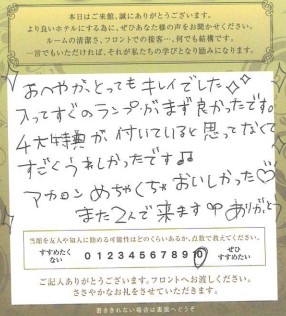 本日はご来館、誠にありがとうございます。
より良いホテルにする為に、ぜひあなた様の声をお聞かせください。
ルームの清潔さ、フロントでの接客…、何でも結構です。
一言でもいただければ、それが私たちの学びとなり励みになります。
おへやが、とってもキレイでした
入ってすぐのランプがまず良かったです。
4大特典が付いていると思ってなくて
すごくうれしかったです♫
マカロン めちゃくちゃ おいしかった♡
また2人で来ます♡ ありがとう
当館を友人や知人に勧める可能性はどのくらいあるか、点数で教えてください。
すすめたくない 0 1 2 3 4 5 6 7 8 9 10 ぜひすすめたい
ご記入ありがとうございます。フロントへお渡しください。
ささやかなお礼をさせていただきます。
書ききれない場合は裏面へどうぞ